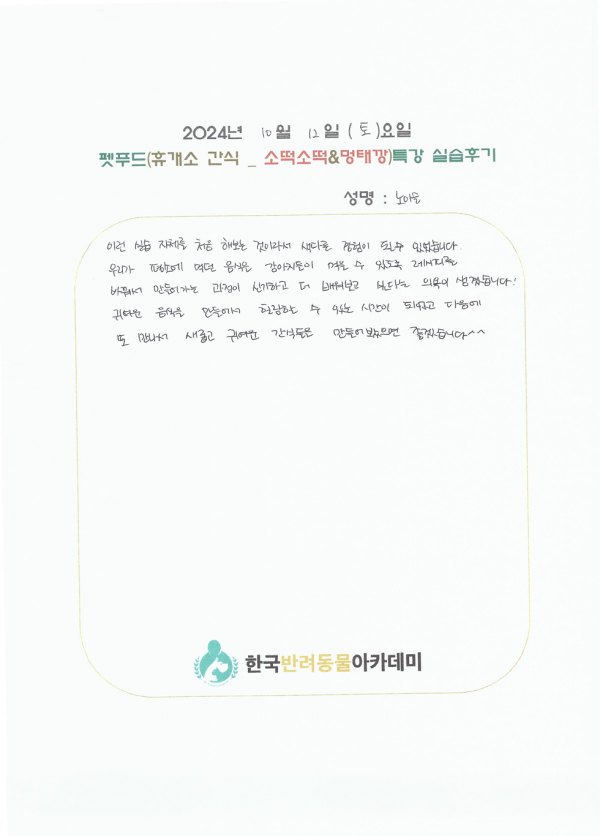 2024년 10월 12일 (토)요일
펫푸드(휴개소 간식 _ 소떡소떡&멍태깡)특강 실습후기
성명 : 노아은
이런 실습 자체를 처음 해보는 것이라서 색다른 경험이 될 수 있었습니다.
우리가 평소에 먹던 음식은 강아지들이 먹을 수 있도록 레시피를
바꿔서 만들어가는 과정이 신기하고 더 배워보고 싶다는 의욕이 생겼습니다!
귀여운 음식을 만들어서 힐링할 수 있는 시간이 되었고 다음에
또 만나서 새롭고 귀여운 간식들은 만들어보았으면 좋겠습니다^^
한국반려동물아카데미